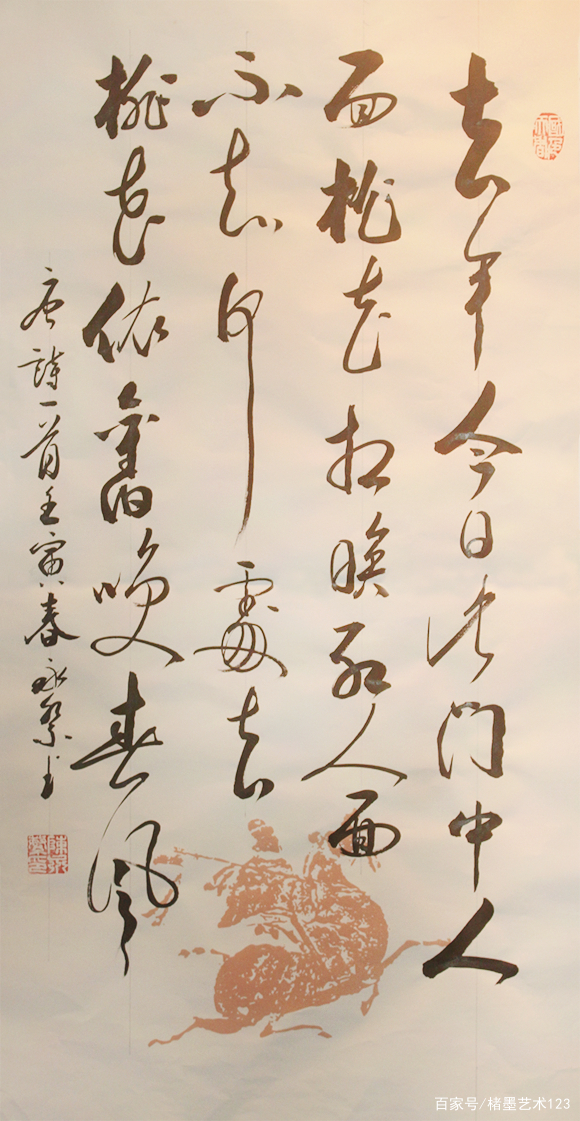 去年今日此门中人
面桃花相暎红人面
不知何處去
桃花依舊咲春风
唐詩一首壬寅春永书
百家号/楮墨艺术123